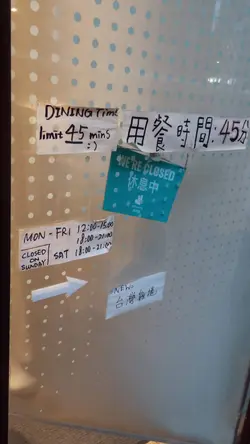 DINING Time
limit 45 mins
:)
用餐時間:45分
WE'RE CLOSED
休息中
MON - FRI 12:00-15:00
18:00-21:00
CLOSED
ON
SUNDAY
SAT 18:00-21:00
NEW
台灣